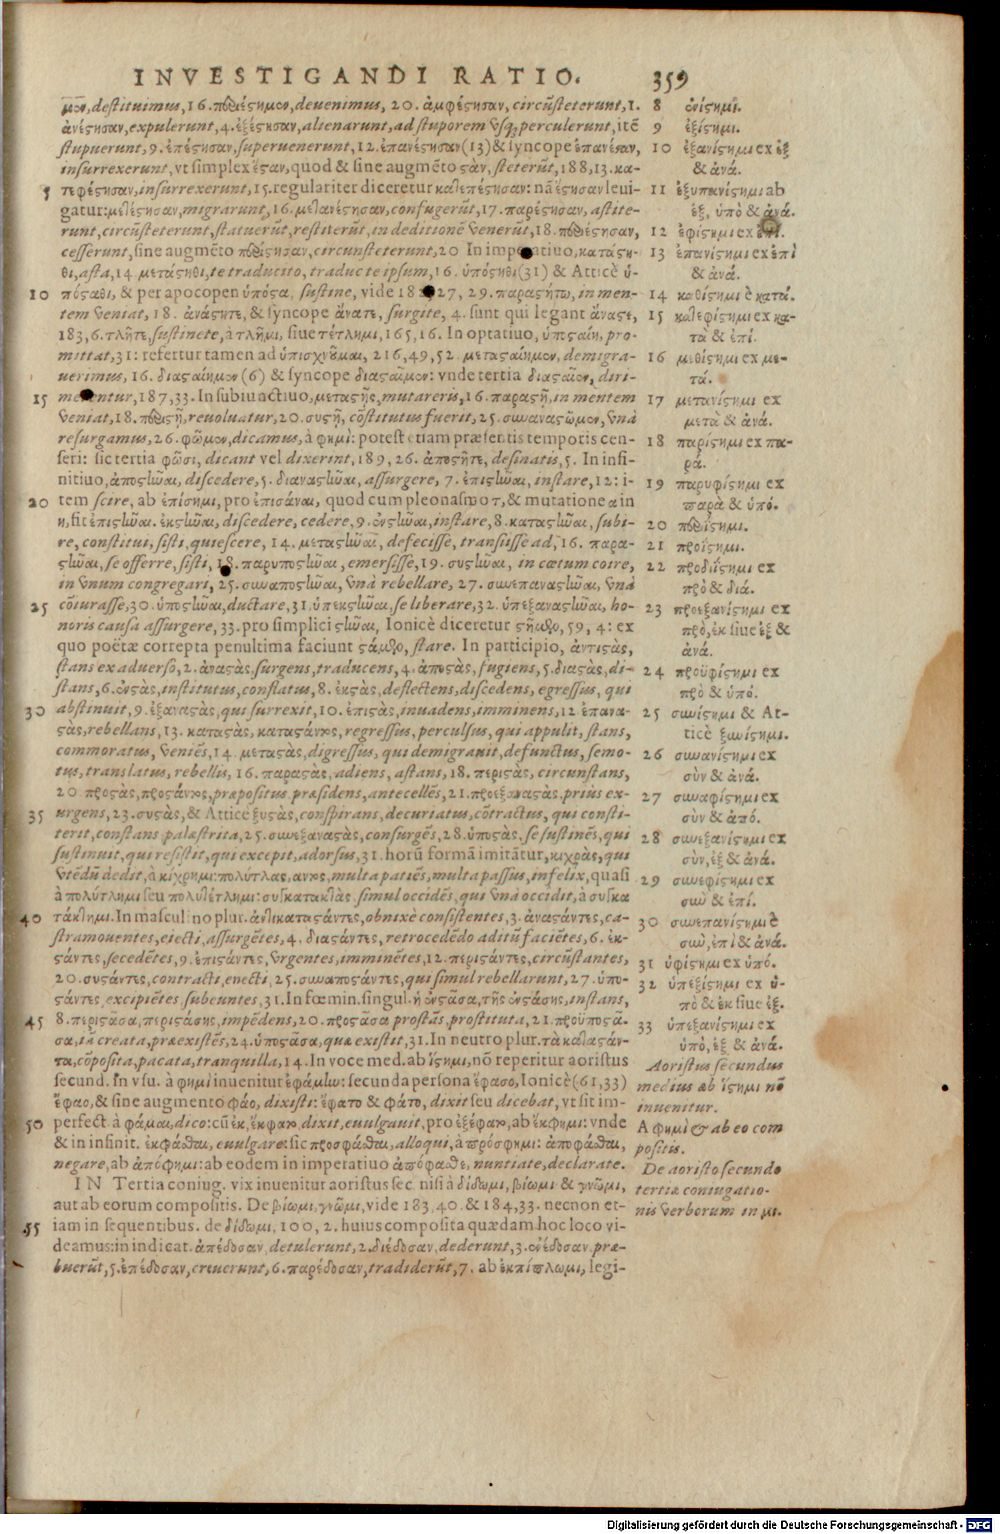 INVESTIGANDI RATIO. 359
μεν, destituimus, 16. περιέςημεν, deuenimus, 20. ἀμφέςησαν, circũsteterunt, 1.
ἀνέςησαν, expulerunt, 4. ἐξέςησαν, alienarunt, ad stuporem vsq; perculerunt, itẽ
stupuerunt, 9. ἐπέςησαν, superuenerunt, 12. ἐπανέςησαν (13) & syncope ἐπανέςαν,
insurrexerunt, vt simplex ἔςαν, quod & sine augmẽto ςὰν, steterũt, 188, 13. κα-
5 τεφέςησαν, insurrexerunt, 15. regulariter diceretur κατεπέςησαν: nã ἔςησαν leui-
gatur: μετέςησαν, migrarunt, 16. μετανέςησαν, confugerũt, 17. παρέςησαν, astite-
runt, circũsteterunt, statuerũt, restiterũt, in deditionẽ venerũt, 18. περιέςησαν,
cesserunt, sine augmẽto περίςησαν, circunsteterunt, 20 In imperatiuo, κατάςη-
θι, asta, 14. μετάςηθι, te traducito, traduc te ipsum, 16. ὑπόςηθι (31) & Atticè ὑ-
10 πόςαθι, & per apocopen ὑπόςα, sustine, vide 182, 27, 29. παραςήτω, in men-
tem veniat, 18. ἀνάςητε, & syncope ἄνςατε, surgite, 4. sunt qui legant ἄναςε,
183, 6. τλῆτε, sustinete, à τλῆμι, siue τέτλημι, 165, 16. In optatiuo, ὑπςαίη, pro-
mittat, 31: refertur tamen ad ὑπισχνοῦμαι, 216, 49, 52. μεταςαίημεν, demigra-
uerimus, 16. διαςαίημεν (6) & syncope διαςαῖμεν: vnde tertia διαςαῖεν, diri-
15 merentur, 187, 33. In subiunctiuo, μεταςῇς, mutareris, 16. παραςῇ, in mentem
veniat, 18. περιςῇ, reuoluatur, 20. συςῇ, cõstitutus fuerit, 25. συναναςῶμεν, vnà
resurgamus, 26. φῶμεν, dicamus, à φημί: potest etiam præsentis temporis cen-
seri: sic tertia φῶσι, dicant vel dixerint, 189, 26. ἀποςῆτε, desinatis, 5. In infi-
nitiuo, ἀποςῆναι, discedere, 5. διαναςῆναι, assurgere, 7. ἐπιςῆναι, instare, 12: i-
20 tem scire, ab ἐπίσημι, pro ἐπισάναι, quod cum pleonasmo τ, & mutatione α in
η, fit ἐπιςῆναι. ἐκςῆναι, discedere, cedere, 9. ἐνςῆναι, instare, 8. καταςῆναι, subi-
re, constitui, sisti, quiescere, 14. μεταςῆναι, defecisse, transisse ad, 16. παρα-
ςῆναι, se offerre, sisti, 18. παρυποςῆναι, emersisse, 19. συςῆναι, in cœtum coire,
in vnum congregari, 25. συναποςῆναι, vnà rebellare, 27. συνεπαναςῆναι, vnà
25 cõiurasse, 30. ὑποςῆναι, ductare, 31. ὑπεκςῆναι, se liberare, 32. ὑπεξαναςῆναι, ho-
noris causa assurgere, 33. pro simplici ςῆναι, Ionicè diceretur 59, 4: ex
quo poëtæ correpta penultima faciunt stare. In participio, ἀντιςὰς,
stans ex aduerso, 2. ἀναςὰς, surgens, traducens, 4. ἀποςὰς, fugiens, 5. διαςὰς, di-
stans, 6. ἐνςὰς, institutus, constatus, 8. ἐκςὰς, deflectens, discedens, egressus, qui
30 abstinuit, 9. ἐξαναςὰς, qui surrexit, 10. ἐπιςὰς, inuadens, imminens, 12 ἐπανα-
ςὰς, rebellans, 13. καταςὰς, καταςάντος, regressus, perculsus, qui appulit, stans,
commoratus, veniẽs, 14. μεταςὰς, digressus, qui demigrauit, defunctus, semo-
tus, translatus, rebellis, 16. παραςὰς, adiens, astans, 18. περιςὰς, circunstans,
20 προςὰς, προςάντος, præpositus præsidens, antecellẽs, 21. προεξαναςὰς prius ex-
35 urgens, 23. συςὰς, & Atticè ξυςὰς, conspirans, decuriatus, cõtractus, qui consti-
terit, constans palæstrita, 25. συνεξαναςὰς, consurgẽs, 28. ὑποςὰς, se sustinẽs, qui
sustinuit, qui resistit, qui excepit, adorsus, 31. horũ formã imitãtur, κιχρὰς, qui
vtẽdũ dedit, à κίχρημι: πολύτλας, αντος, multa patiẽs, multa passus, infelix, quasi
à πολύτλημι seu πολυτέτλημι: συγκατακλὰς, simul occidẽs, qui vnà occidit, à συγκα
40 τάκλημι. In masculino plur. ἀντικαταςάντες, obnixè consistentes, 3. ἀναςάντες, ca-
stramouentes, eiecti, assurgẽtes, 4. διαςάντες, retrocedẽdo aditũ faciẽtes, 6. ἐκ-
ςάντες, secedẽtes, 9. ἐπιςάντες, vrgentes, imminẽtes, 12. περιςάντες, circũstantes,
20. συςάντες, contracti, enecti, 25. συναποςάντες, qui simul rebellarunt, 27. ὑπο-
ςάντες, excipiẽtes, subeuntes, 31. In fœmin. singul. ἡ ἐνςᾶσα, τῆς ἐνςάσης, instans,
45 8. περιςᾶσα, περιςάσης, impẽdens, 20. προςᾶσα prostãs, prostituta, 21. προϋποςᾶ-
σα, iã creata, præexistẽs, 24. ὑποςᾶσα, quæ existit, 31. In neutro plur. τὰ καταςάν-
τα, cõposita, pacata, tranquilla, 14. In voce med. ab ἵςημι, nõ reperitur aoristus
secund. In vsu. à φημὶ inuenitur ἐφάμην: secunda persona ἔφασο, Ionicè (61, 33)
ἔφαο, & sine augmento φάο, dixisti: ἔφατο & φάτο, dixit seu dicebat, vt sit im-
50 perfect. à φάμαι, dico: cũ ἐκ, ἔκφατο, dixit, euulgauit, pro ἐξέφατο, ab ἔκφημι: vnde
& in infinit. ἐκφάσθαι, euulgare: sic προσφάσθαι, alloqui, à πρόσφημι: ἀποφάσθαι,
negare, ab ἀπόφημι: ab eodem in imperatiuo ἀπόφασθε, nuntiate, declarate.
IN Tertia coniug. vix inuenitur aoristus sec. nisi à δίδωμι, βίωμι & γνῶμι,
aut ab eorum compositis. De βίωμι, γνῶμι, vide 183, 40. & 184, 33. necnon et-
55 iam in sequentibus. de δίδωμι, 100, 2. huius composita quædam hoc loco vi-
deamus: in indicat. ἀπέδοσαν, detulerunt, 2. διέδοσαν, dederunt, 3. ἐνέδοσαν, præ-
buerũt, 5. ἐπέδοσαν, creuerunt, 6. παρέδοσαν, tradiderũt, 7. ab ἐκπίπλωμι, legi-
8 ἐνίςημι.
9 ἐξίςημι.
10 ἐξανίςημι ex ἐξ
& ἀνά.
11 ἐξυπανίςημι ab
ἐξ, ὑπὸ & ἀνά.
12 ἐφίςημι ex ἐπί.
13 ἐπανίςημι ex ἐπὶ
& ἀνά.
14 καθίςημι è κατά.
15 κατεφίςημι ex κα-
τὰ & ἐπί.
16 μεθίςημι ex με-
τά.
17 μετανίςημι ex
μετὰ & ἀνά.
18 παρίςημι ex πα-
ρά.
19 παρυφίςημι ex
παρὰ & ὑπό.
20 περιίςημι.
21 προΐςημι.
22 προδιίςημι ex
πρὸ & διά.
23 προεξανίςημι ex
πρὸ, ἐκ siue ἐξ &
ἀνά.
24 προϋφίςημι ex
πρὸ & ὑπό.
25 συνίςημι & At-
ticè ξυνίςημι.
26 συνανίςημι ex
σὺν & ἀνά.
27 συναφίςημι ex
σὺν & ἀπό.
28 συνεξανίςημι ex
σὺν, ἐξ & ἀνά.
29 συνεφίςημι ex
σὺν & ἐπί.
30 συνεπανίςημι è
σὺν, ἐπὶ & ἀνά.
31 ὑφίςημι ex ὑπό.
32 ὑπεξίςημι ex ὑ-
πὸ & ἐκ siue ἐξ.
33 ὑπεξανίςημι ex
ὑπὸ, ἐξ & ἀνά.
Aoristus secundus
medius ab ἵςημι nõ
inuenitur.
A φημὶ & ab eo com
positis.
De aoristo secundo
tertiæ coniugatio-
nis verborum in μι.
Digitalisierung gefördert durch die Deutsche Forschungsgemeinschaft - DFG